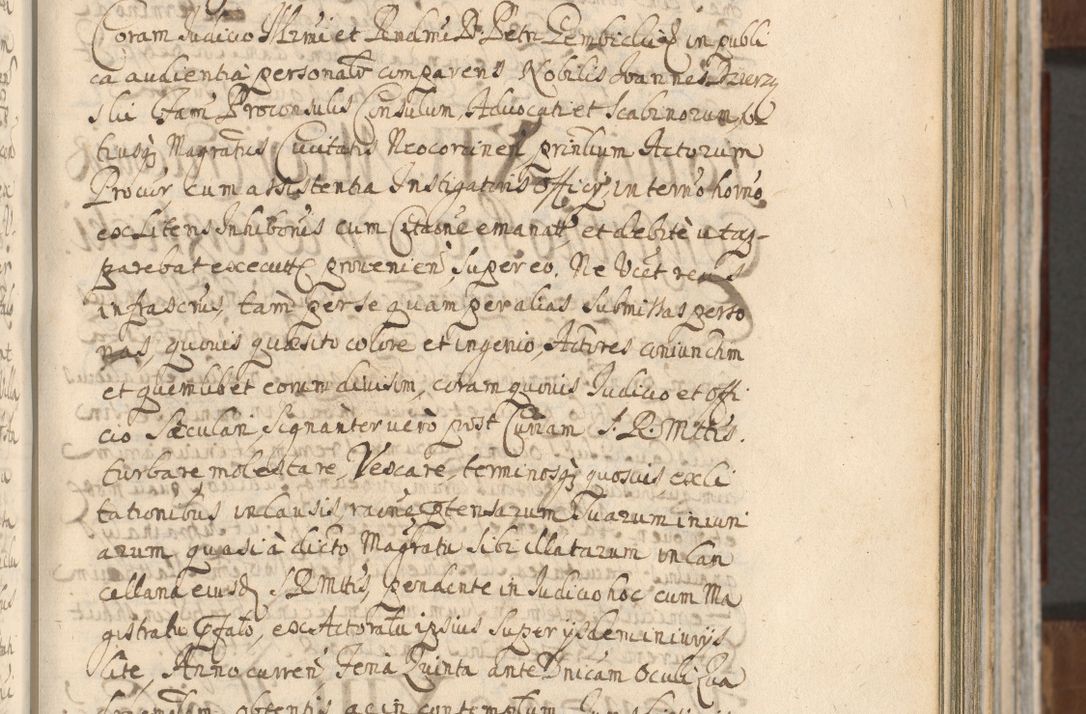 Coram Judicio Illrmi et Rndmi D. Petri Gembicki in publi
ca audientia personalr comparens Nobilis Joannes Dzierz
ski Fam Proconsulis Consulum, Advocati et Scabinorum,
tiusq Magratus Civitatis Neocorcinen, prinlium Actorum
Procur, cum assistentia Instigatoris Officy, in termo horno
ex Litens Inhibonis cum Citaone emanatt, et debite utap-
parebat executt provenien, super eo. Ne Vcet
infrascrius, tam per se quam per alias submissas perso
nas, quovis quæsito colore et ingenio, Actores coniunctim
et quemlibet eorum divisim, coram quovis Judicio et Offi
cio Sæculari, signanter vero post Curiam S. R. Mttis.
turbare molestare, Vexare, terminosq quosvis ex Ci
tationibus in causis, raone prtensarum suarum iniuri
arum quasi à dicto Magratu sibi illatarum in Can
cellaria eiusd S R Mttis, pendente in Judicio hoc, cum Ma
gistratu pfato, ex Actoratu ipsius super ysdem iniurys
lite, Anno curren Feria Quinta ante Dnicam Oculi
obtentis ac in contemptum